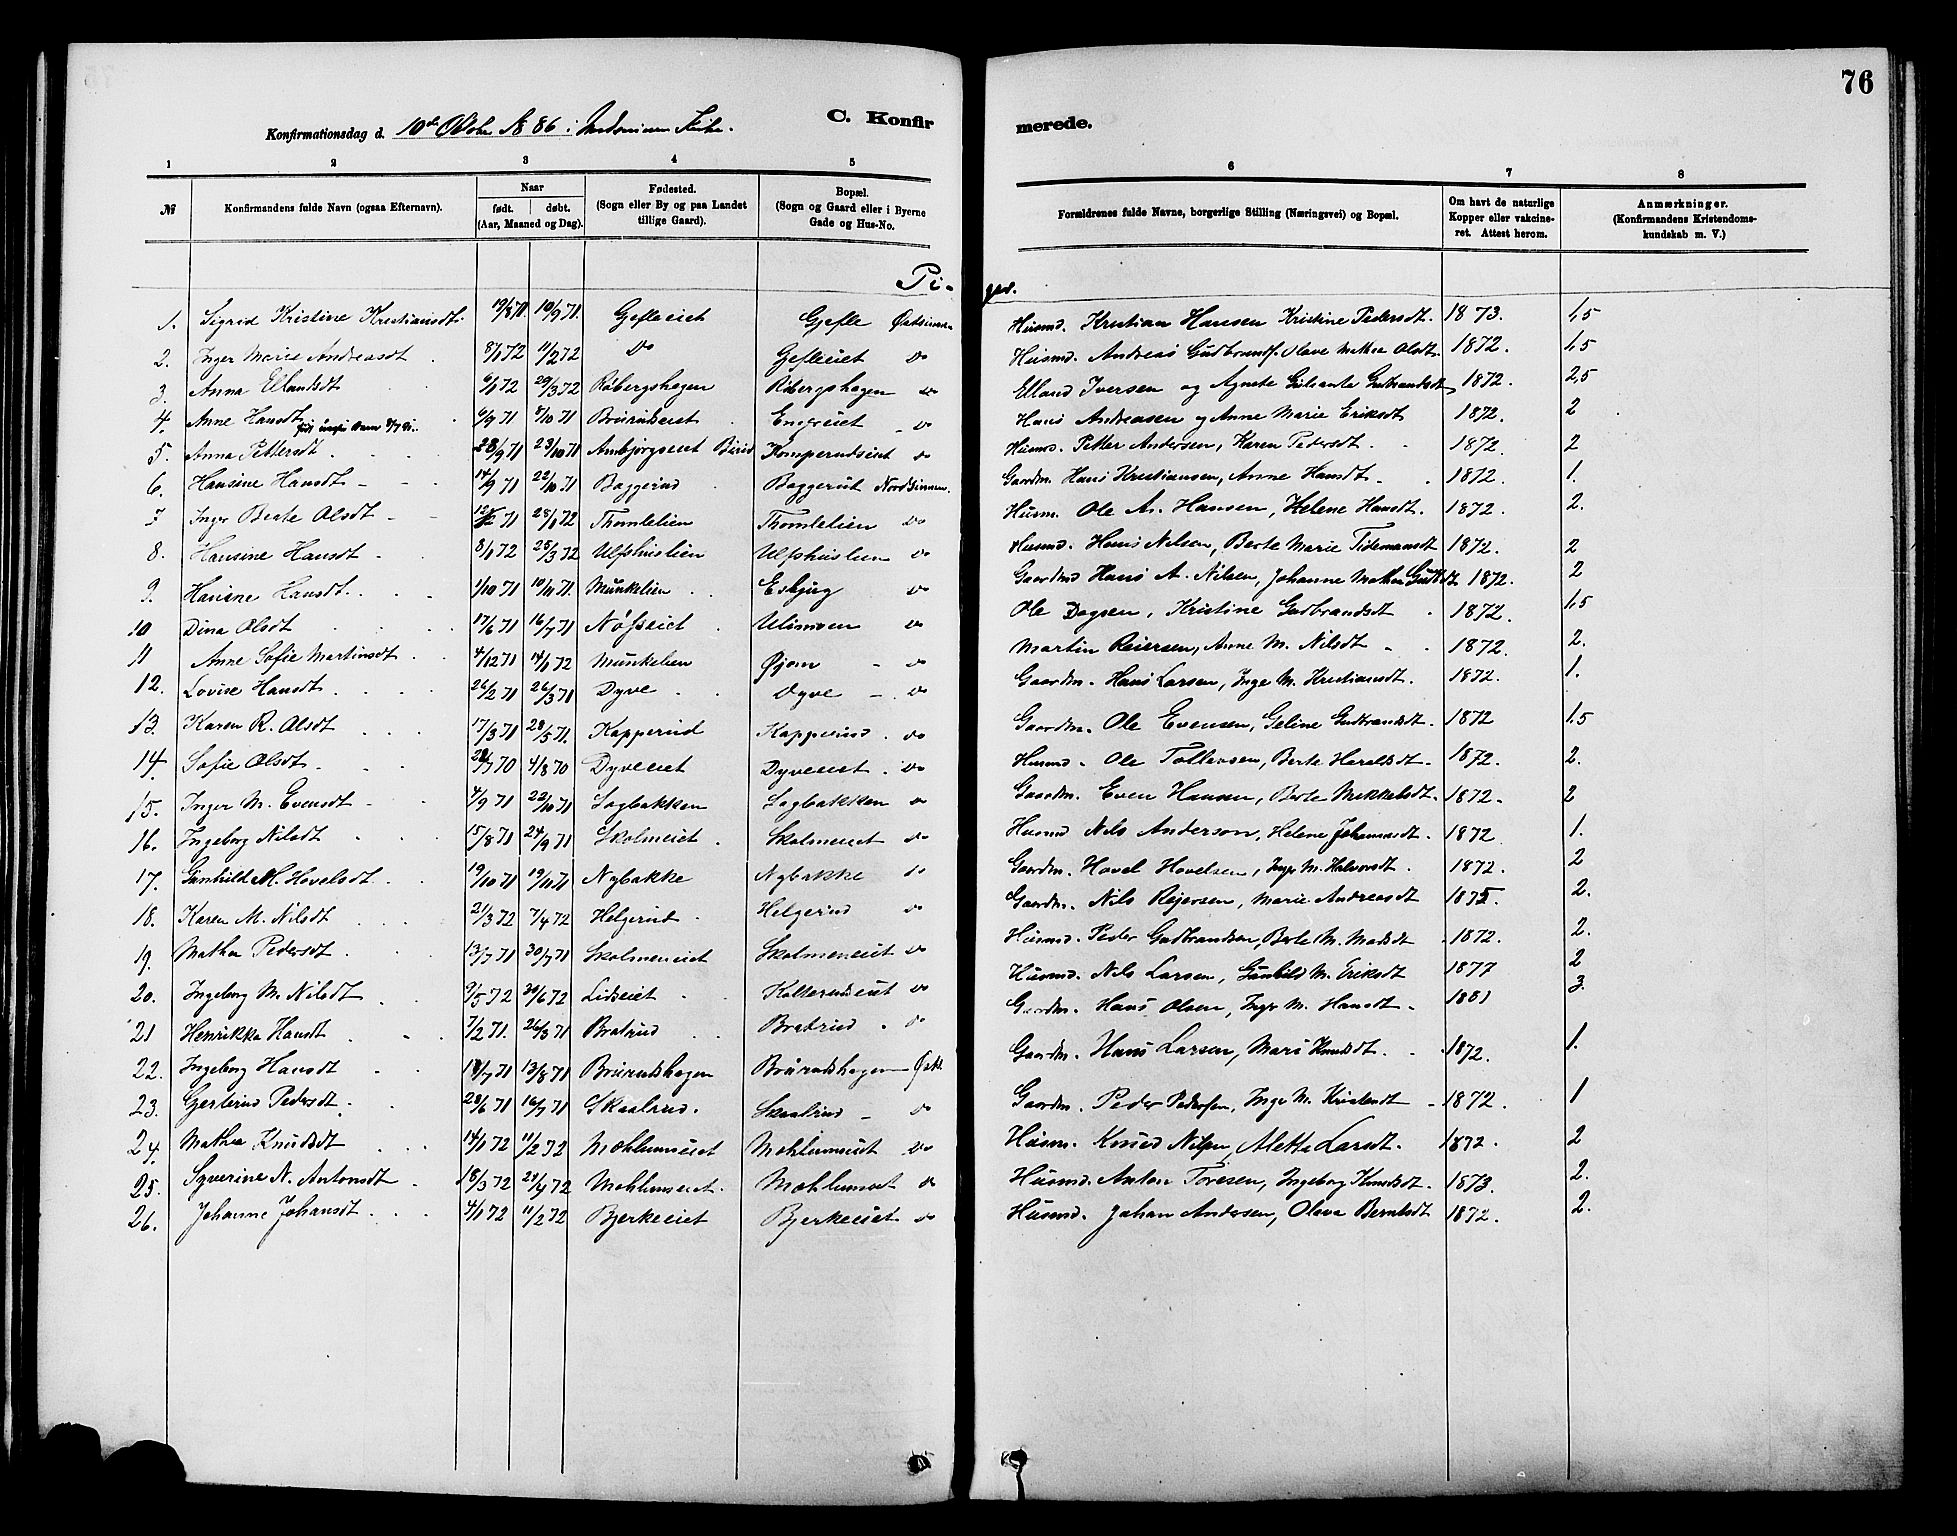 76
Konfirmationsdag d. 10de Oktbr 1886 i Kirke.
C. Konfirmerede.
1 2 3 4 5 6 7 8
№ Konfirmandens fulde Navn (ogsaa Efternavn). Naar født. døbt. (Aar, Maaned og Dag). Fødested. (Sogn eller By og paa Landet tillige Gaard). Bopæl. (Sogn og Gaard eller i Byerne Gade og Hus-No. Forældrenes fulde Navne, borgerlige Stilling (Næringsvei) og Bopæl. Om havt de naturlige Kopper eller vakcineret. Attest herom. Anmærkninger. (Konfirmandens Kristendomskundskab m. V.)
Piger.
1. Sigrid Kristine Kristiansdt. 19/8 71. 10/9 71. Gjefleeiet Gjefle Østsinnen Husmd. Kristian Hansen Kristine Pedersdt. 1873. 1,5
2. Inger Marie Andreasdt 8/1 72 11/2 72 do Gefleeiet do Husmd. Andreas Gudbrands. Olave Mathea Olsdt. 1872. 1,5
3. Anna Ellandsdt 6/1 72 29/3 72 Røbergshagen Røbergshagen do Elland Iversen og Agnete Gudbrandsdt 1872. 2,5
4. Anne Hansdt 6/9 71 8/10 71 Brurudseiet Engereiet do Hans Andreasen og Anne Marie Eriksdt 1872. 2
5. Anna Pettersdt 28/9 71 23/10 71 Ambjørgseiet Birid Komperudseiet do Husmd. Petter Andersen, Karen Pedersdt. 1872. 2
6. Hansine Hansdt 14/9 71 22/10 71 Baggerud Baggerud Nordsinnen. Gaardm. Hans Kristiansen, Anne Hansdt 1872. 1.
7 Inger Berte Olsdt 12/12 71 28/1 72 Thomlelien Thomlelien do Husm. Ole A. Hansen, Helene Hansdt. 1872. 2.
8. Hansine Hansdt 8/1 72 28/3 72 Ulfshuslien Ulfshuslien do Husmd. Hans Nilsen, Berte Marie Tidemandsdt 1872. 2
9. Hansine Hansdt. 1/10 71 10/11 71. Munkelien Esbjug do Gaardmd Hans A. Nilsen, Johanne Mathea Gulbdt 1872. 2
10 Dina Olsdt 17/6 71 16/7 71 Nøfseiet Ulimoen do Ole Dagsen, Kristine Gudbrandsdt 1872. 1,5
11 Anne Sofie Martinsdt 4/12 71 14/1 72 Munkelien Øjom do Martin Reiersen, Anne M. Nilsdt 1872. 2.
12. Lovise Hansdt 26/2 71 26/3 71 Dyve Dyve do Gaardm. Hans Larsen, Inge M. Kristiansdt. 1872. 1.
13. Karen R. Olsdt 17/3 71 28/5 71. Kapperud Kapperud do Gaardm. Ole Evensen, Geline Gudbrandsdt. 1872 1,5
14. Sofie Olsdt 28/7 70 4/8 70 Dyveeiet Dyveeiet do Husmd. Ole Tollevsen, Berte Haraldsdt. 1872. 2.
15. Inger M. Evensdt 4/9 71 22/10 71 Sagbakken Sagbakken do Gaardm. Even Hansen, Berte Mikkelsdt. 1872. 2
16. Ingeborg Nilsdt 15/8 71 24/9 71 Skolmeiet Skolmeiet do Husmd Nils Anderson, Helene Johannesdt. 1872. 1.
17. Gunhild M. Hovelsdt. 19/10 71 19/11 71 Nybakke Nybakke do Gaardm. Hovel Hovelsen, Inge M. Halvorsdt. 1872. 2
18. Karen M. Nilsdt 21/3 72 7/4 72 Helgerud Helgerud do Gaardm. Nils Rejersen, Marie Andreasdt 1875. 2.
19. Mathea Pedersdt 13/7 71 30/7 71 Skolmeneiet Skolmeneiet do Husmd. Peder Gudbrandsen, Berte M. Madsdt 1872. 2.
20. Ingeborg M. Nilsdt 9/5 72 30/6 72 Lidseiet Kolterudseiet do Husmd. Nils Larsen, Gunhild M. Eriksdt 1877 2
21 Henrikka Hansdt 7/2 71. 26/3 71 Bratrud Bratrud do Gaardm. Hans Olsen, Inge M. Hansdt 1881 3.
22. Ingeborg Hansdt 18/7 71 13/8 71 Brurudshagen Brurudshagen Østs Gaardm. Hans Larsen, Mari Knudsdt. 1872. 1.
23. Gjertrud Pedersdt. 28/6 71 16/7 71 Skaalrud. Skaalrud do Gaardm. Peder Pedersen, Inge M. Kristendt 1872. 1
24. Mathea Knudsdt 14/1 72 11/2 72 Mæhlumseiet Mæhlumseiet do Husm. Knud Nilsen, Alette Larsdt. 1872. 2
25. Syverine N. Antonsdt 18/3 72 21/4 72 Mæhlumseiet. Mæhlumseiet do Husmd. Anton Toresen, Ingeborg Knudsdt. 1873. 2.
26. Johanne Johansdt 4/1 72 11/2 72 Bjerkeeiet Bjerkeeiet do Husmd. Johan Andersen, Olava Berntsdt 1872. 2.